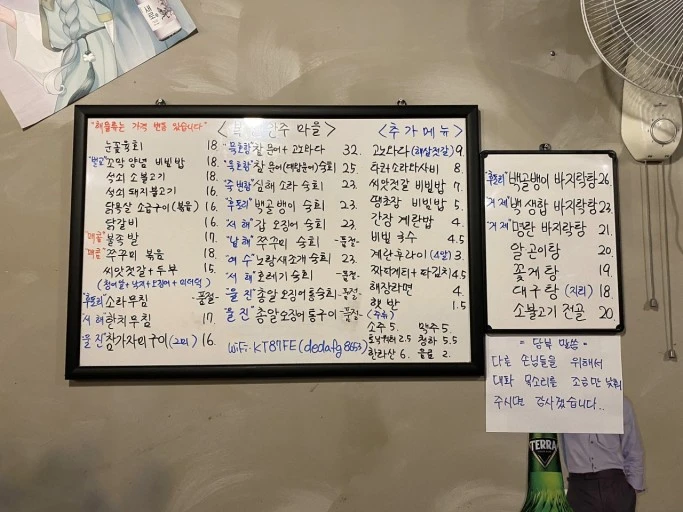 "해물류는 가격 변동 있습니다"
안주 마을>
눈꽃육회 18.
"벌교"꼬막 양념 비빔밥 18.
석쇠 소불고기 18.
석쇠 돼지불고기 16.
닭목살 소금구이 (볶음) 16.
닭갈비 16.
"매콤"불족발 17.
"매콤"쭈꾸미 볶음 18.
씨앗젓갈 + 두부 15.
"후포리"소라무침 -품절-
"서해"한치무침 17.
"울진"참가자미구이 16.
"묵호항"찰 문어 + 고노와다 32.
"묵호항"찰 문어 숙회 25.
"주변항"심해 소라 숙회 23.
"후포리"백골뱅이 숙회 23.
"서해"갑 오징어 숙회 23.
"남해"쭈꾸미 숙회 -품절-
"여수"노랑새조개 숙회 23.
"서해"호래기 숙회 -품절-
"울진"총알 오징어 통숙회 -품절-
"울진"총알 오징어 통구이 -품절-
WiFi-KT87FE (dedafg8653)
<추가메뉴>
고노와다 (해삼젓갈) 9.
타코 + 소라와사비 8.
씨앗젓갈 비빔밥 7.
명촌장 비빔밥 5.
간장 계란밥 4.
비빔 국수 4.5
계란후라이 (4알) 3.
짜파게티 + 파김치 4.5
해장라면 4.
햇 반 1.5
소주 5. 맥주 5.
토닉워터 2.5 청하 5.5
한라산 6. 음료 2.
"후포리"백골뱅이 바지락탕 26.
"거제"백생합 바지락탕 23.
"거제"명란 바지락탕 21.
알곤이탕 20.
꽃게탕 19.
대구탕 (지리) 18.
소불고기 전골 20.
= 당부 말씀 =
다른 손님들을 위해서
대화 목소리를 조금만 낮춰
주시면 감사겠습니다..
TERRA